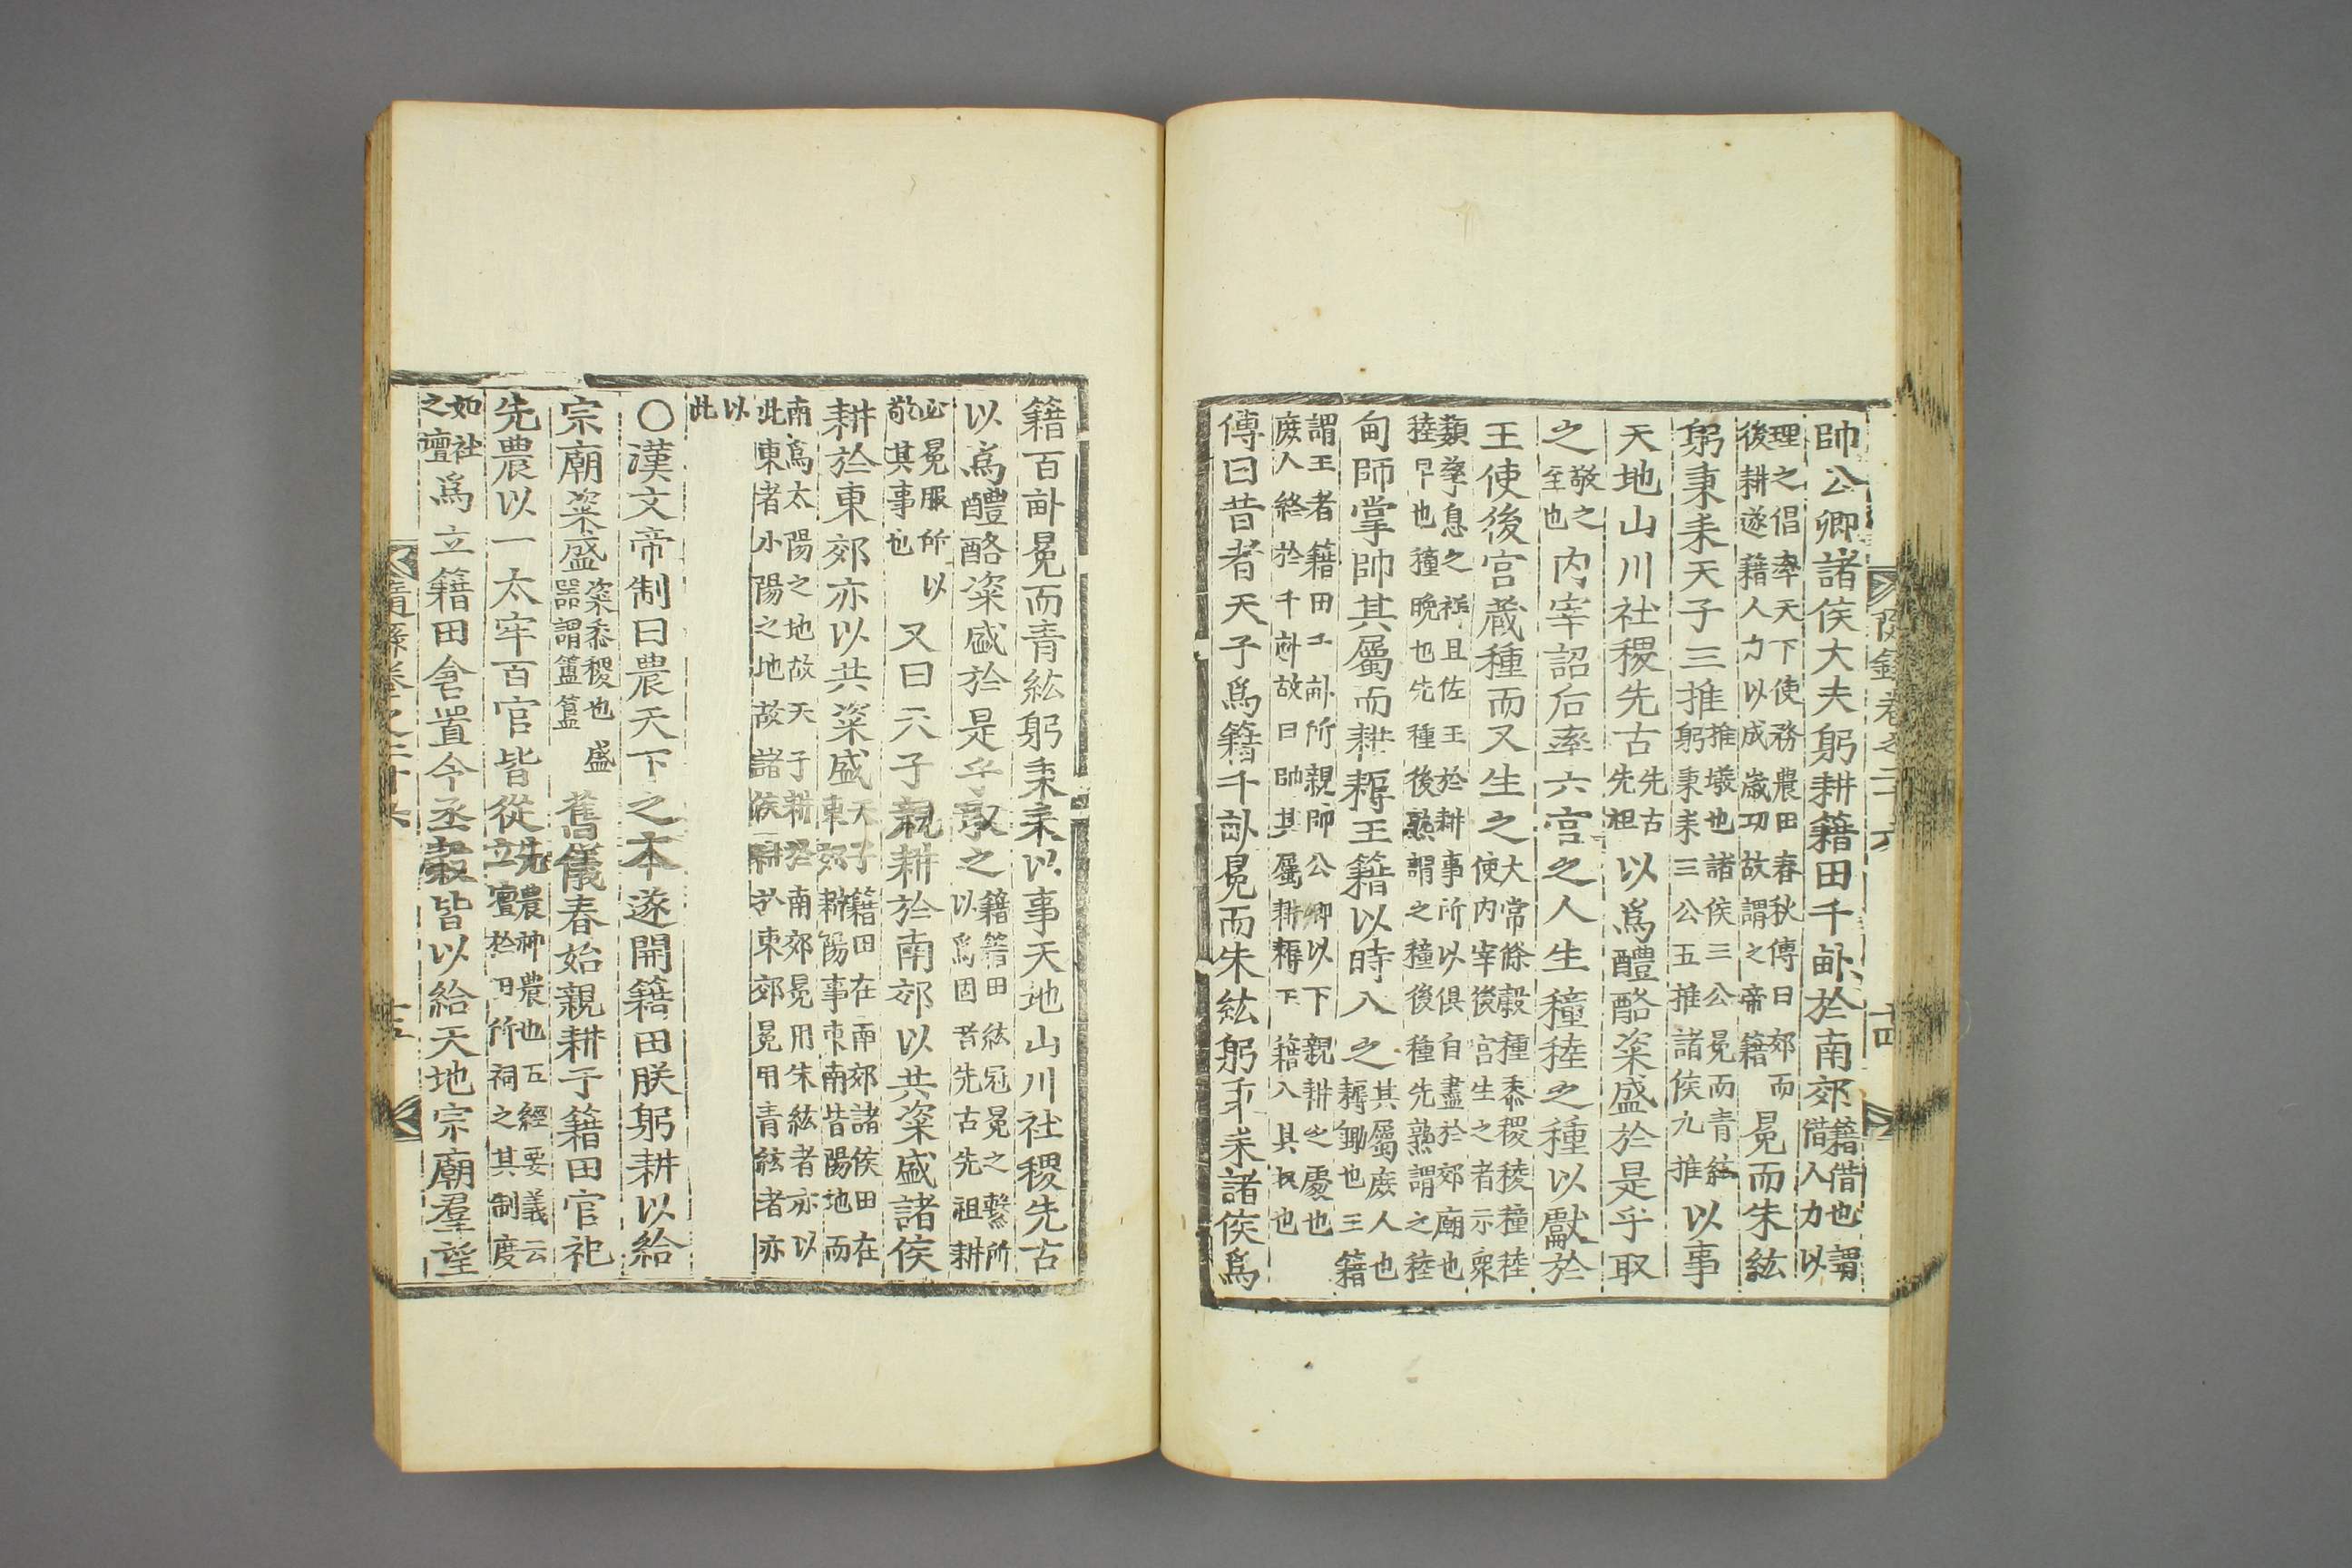 帥公卿諸侯大夫躬耕籍田千畝於南郊籍借也謂借人力以
理之倡率天下使務農田春秋傳曰郊而後耕遂籍人力以成歲功故謂之帝籍冕而朱紘
躬秉耒天子三推推墢也諸侯三公冕而青紘躬秉耒三公五推諸侯九推以事
天地山川社稷先古先古先祖以爲醴酪粢盛於是乎取
之敬之至也内宰詔后率六宮之人生穜稑之種以獻於
王使後宮蔵種而又生之大常餘穀種黍稷稜穜稑使内宰後宮生之者示衆
類孳息之祥且佐王於耕事所以俱自盡於郊廟也稑早也穜晚也先種後熟謂之穜後種先熟謂之稑
甸師掌帥其屬而耕耨王籍以時入之其屬庶人也耨鋤也三籍
謂王者籍田千畝所親帥公卿以下親耕之處也庶人終於千畝故曰帥其屬耕耨王籍入其收也
傳曰昔者天子爲籍千畝冕而朱紘躬秉耒諸侯爲
籍百畝冕而青紘躬秉耒以事天地山川社稷先古
以爲醴酪粢盛於是乎取之籍籍田紘冠冕之繫所以爲固昔先古先祖耕
必冕服所以敬其事也又曰天子親耕於南郊以共粢盛諸侯
耕於東郊亦以共粢盛天子籍田在南郊諸侯田在東郊耕陽事東南皆陽地而
南爲太陽之地故天子耕於南郊冕用朱紘者亦以此東者小陽之地故諸侯耕於東郊冕用青紘者亦
以此
○漢文帝制曰農天下之本遂開籍田朕躬耕以給
宗廟粢盛粢黍稷也盛器謂簠簋舊儀春始親耕于籍田官祀
先農以一太牢百官皆從先農神農也五經要義云立壇於田所祠之其制度
如社之壇爲立籍田倉置令丞穀皆以給天地宗廟羣望
隨錄卷之二十六 十四
隨錄卷之二十六 十五